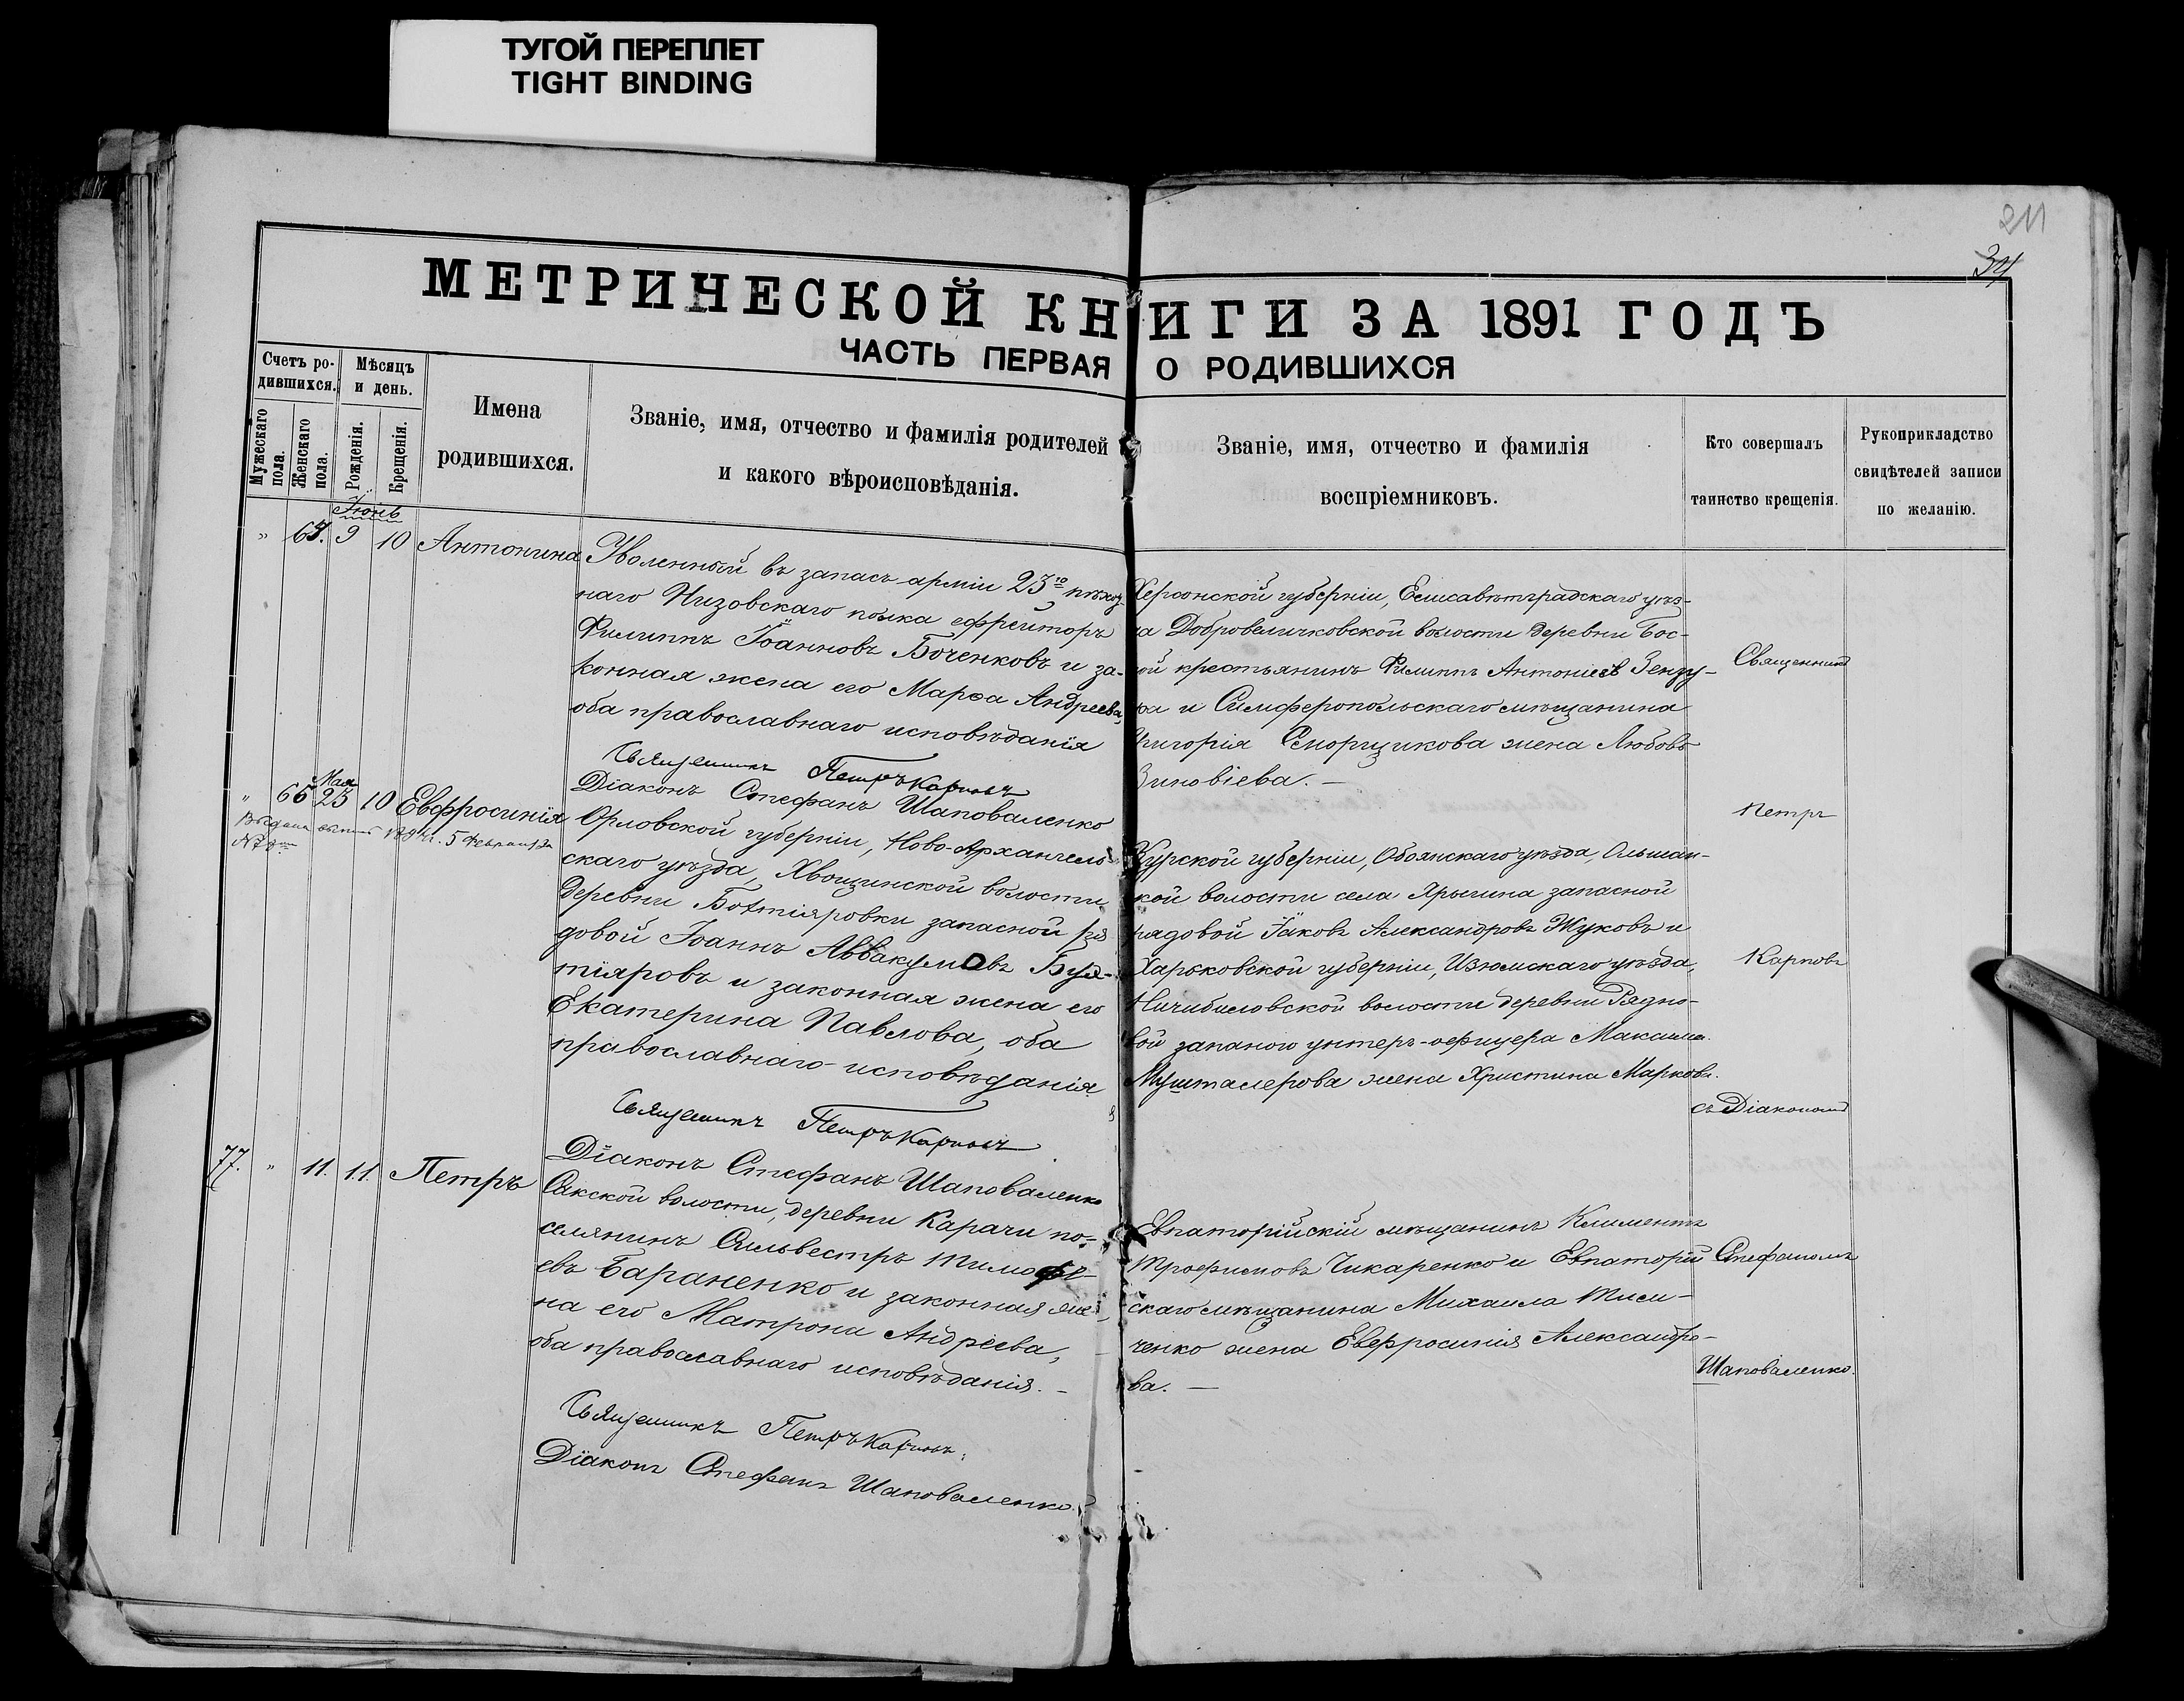 ТУГОЙ ПЕРЕПЛЕТ
TIGHT BINDING
211
34
МЕТРИЧЕСКОЙ КНИГИ ЗА 1891 ГОДЪ
ЧАСТЬ ПЕРВАЯ О РОДИВШИХСЯ
Счетъ ро-
дившихся.
Мужескаго
пола.
Женскаго
пола.
Мѣсяцъ
и день.
Рожденія.
Крещенія.
Имена
родившихся.
Званіе, имя, отчество и фамилія родителей
и какого вѣроисповѣданія.
Званіе, имя, отчество и фамилія
воспріемниковъ.
Кто совершалъ
таинство крещенія.
Рукоприкладство
свидѣтелей записи
по желанію.
Іюнь
" 9 10 Антонина
Уволенный въ запасъ арміи 23го пѣхот-
наго Низовскаго полка ефрейторъ
Филиппъ Іоанновъ Боченковъ и за-
конная жена его Марѳа Андреева,
оба православнаго исповѣданія
Священникъ Петръ Карповъ
Діаконъ Стефанъ Шаповаленко
Херсонской губерніи, Елисаветградскаго уѣз-
да Добровеличковской волости деревни Бос-
ой крестьянинъ Филиппъ Антоніевъ
и Симферопольскаго мѣщанина
Григорія Сморщикова жена Любовь
Зиновіева. —
Мая
" 65 23 10 Евфросинія
5 Февраля за
Орловской губерніи, Ново-Архангель
скаго уѣзда, Хвощинской волости
деревни запасной ря
довой Іоаннъ Аввакумовъ Бух-
тіяровъ и законная жена его
Екатерина Павлова, оба
православнаго исповѣданія
Священникъ Петръ Карповъ
Діаконъ Стефанъ Шаповаленко
Курской губерніи, Обоянскаго уѣзда, Ольшан-
кой волости села запасной
рядовой Іаковъ Александровъ Жуковъ и
Харьковской губерніи, Изюмскаго уѣзда,
волости деревни Рядно-
вой запаного унтеръ-офицера Максима
Мушталерова жена Христина Маркова.
77. " 11. 11. Петръ
Сакской волости, деревни Карачи по-
селянинъ Сильвестръ Тимофе-
евъ Бараненко и законная же-
на его Матрона Андреева,
оба православнаго исповѣданія. —
Священникъ Петръ Карповъ.
Діаконъ Стефанъ Шаповаленко.
Евпаторійскій мѣщанинъ Климентъ
Трофимовъ Чикаренко и Евпаторій
скаго мѣщанина Михаила Тими-
ченко жена Евфросинія Александро-
ва. —
Священникъ
Петръ
Карповъ
съ Діакономъ
Стефаномъ
Шаповаленко.